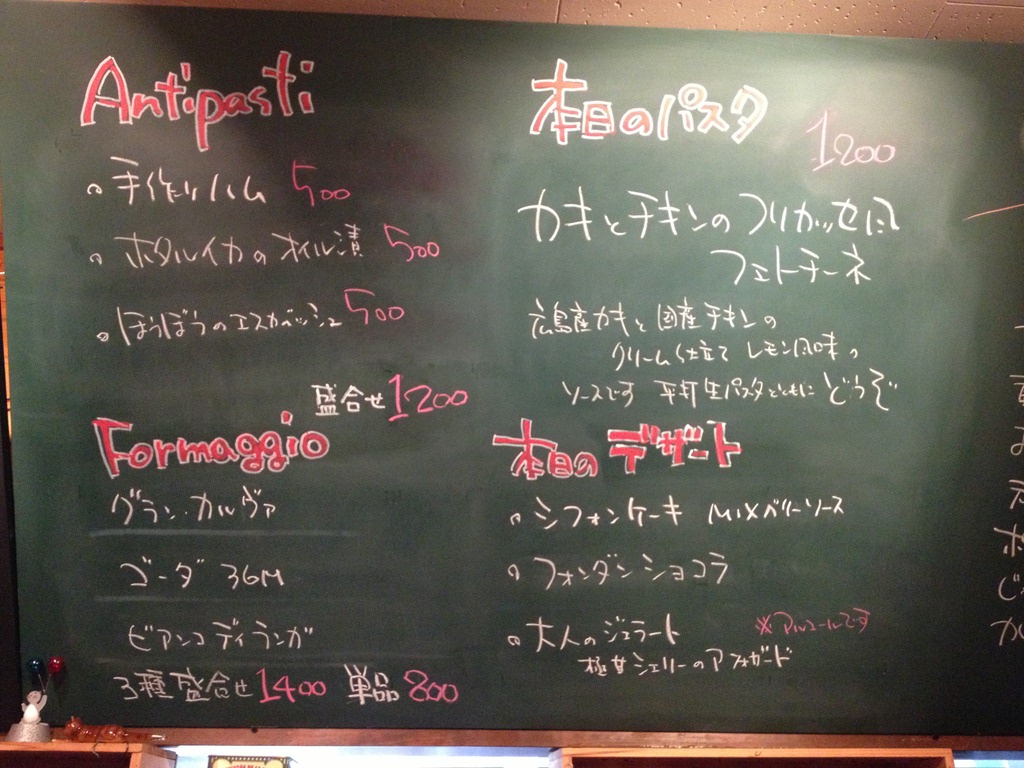 Antipasti
手作りハム 500
ホタルイカのオイル漬 500
ほうぼうのエスカベッシュ 500
盛合せ 1200
Formaggio
グラン・カルヴァ
ゴーダ 36M
ビアンコ ディ ランガ
3種盛合せ 1400 単品 800
本日のパスタ
1200
カキとチキンのフリカッセ風
フェトチーネ
広島産カキと国産チキンの
クリーム仕立て レモン風味の
ソースです 平打生パスタとともにどうぞ
本日のデザート
シフォンケーキ MIXベリーソース
フォンダンショコラ
大人のジェラート ※アルコールです
極甘シェリーのアフォガード